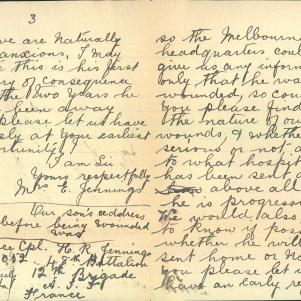 3
we are Naturally
anxious, I may
this is his first
of consequence
the Two Years he
been away
please let us have
at Your earliest
I am Sir
Yours respectfully
Mrs E. Jennings
Our son's address
before being wounded
was
Cpl. H. R. Jennings
48th Battalion
12th Brigade
A. I. F.
France
so the Melbourne
headquarters could
give us any inform
only that he was
wounded, so could
You please find
the nature of our
wounds, & whether
serious or not, a
to what hospital
has been sent a
above all
he is progress
We would also
to know if possi
whether he will
sent home or not
you please let
have an early re